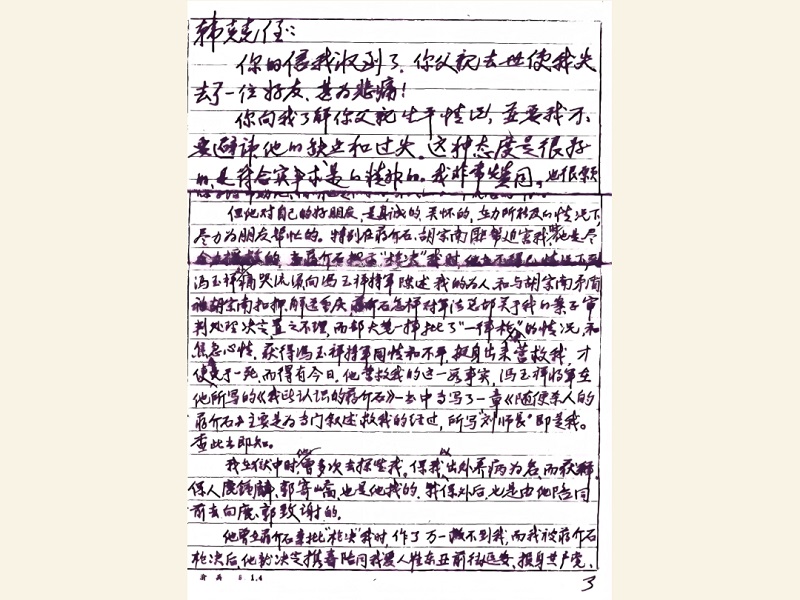 韩克任：
你的信我收到了，你父亲去世使我失
去了一位好友，甚为悲痛！
你向我了解你父亲生平情况，并要我不
要避讳他的缺点和过失，这种态度是很好
的，是符合实事求是的精神的。我非常赞同，也很
但他对自己的好朋友，是真诚的，关怀的，在力所能及的情况下，
尽力为朋友帮忙的。特别在蒋介石、胡宗南迫害我，他是尽
冯玉祥痛哭流涕向冯玉祥将军陈述我的为人，和与胡宗南矛盾
被胡宗南扣押，解送重庆，蒋介石怎样对军法总部关于我的案子审
判处理决定置之不理，而却大笔一挥批了“一律枪”的情况，和
焦急心情，获得冯玉祥将军同情和不平，挺身出来营救我，才
使免于一死，而得有今日。他营救我的这一客事实，冯玉祥将军在
他所写的《我所认识的蒋介石》一书中写了一章《随便杀人的
蒋介石》主要是为专门叙述救我的经过，所写“刘师长”即是我。
查此书即知。
我在狱中时，他曾多次去探望我，保我以出外养病为名，而获释。
保人鹿钟麟、郭寄峤，也是他找的。我保外后，也是由他陪同
前去向鹿、郭致谢的。
他曾在蒋介石亲批“枪决”我时，作了万一救不到我，而我被蒋介石
枪决后，他就决定携眷陪同我爱人崔东亚前往延安，投身共产党、
3